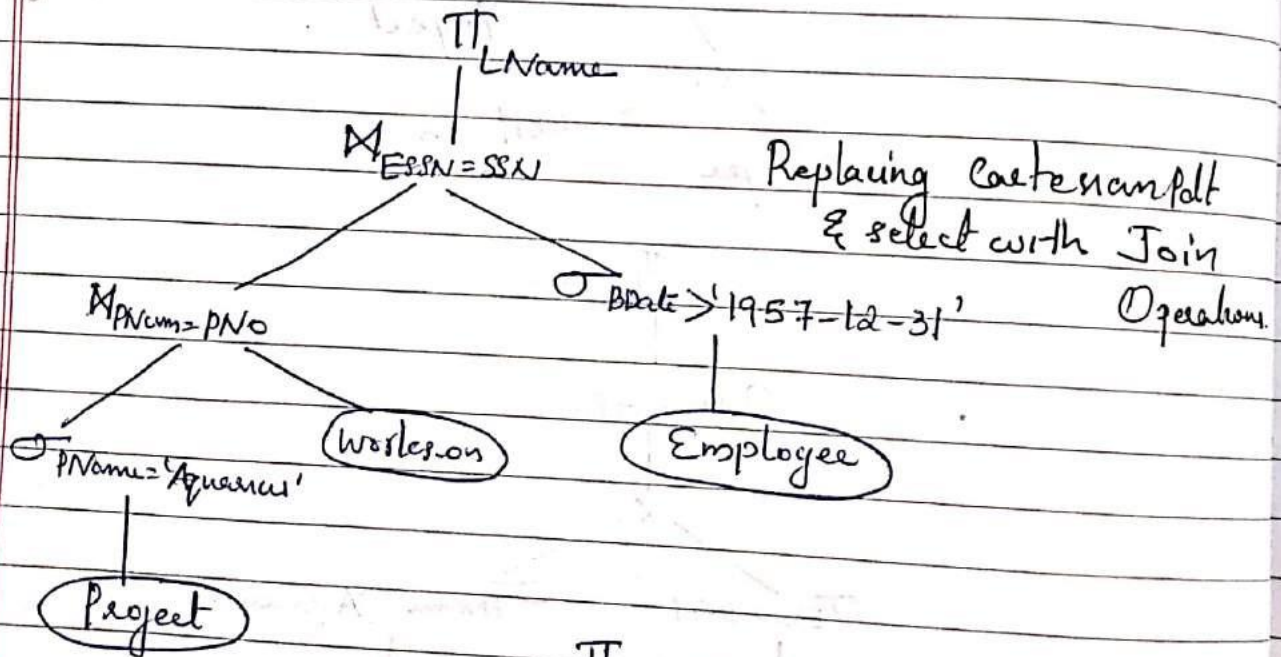 π LName
⋈ ESSN = SSN
Replacing Cartesian Pdt
& select with Join
Operations.
⋈ PNum = PNo
σ BDate > '1957-12-31'
σ PName = 'Aquarius'
Works-on
Employee
Project
π